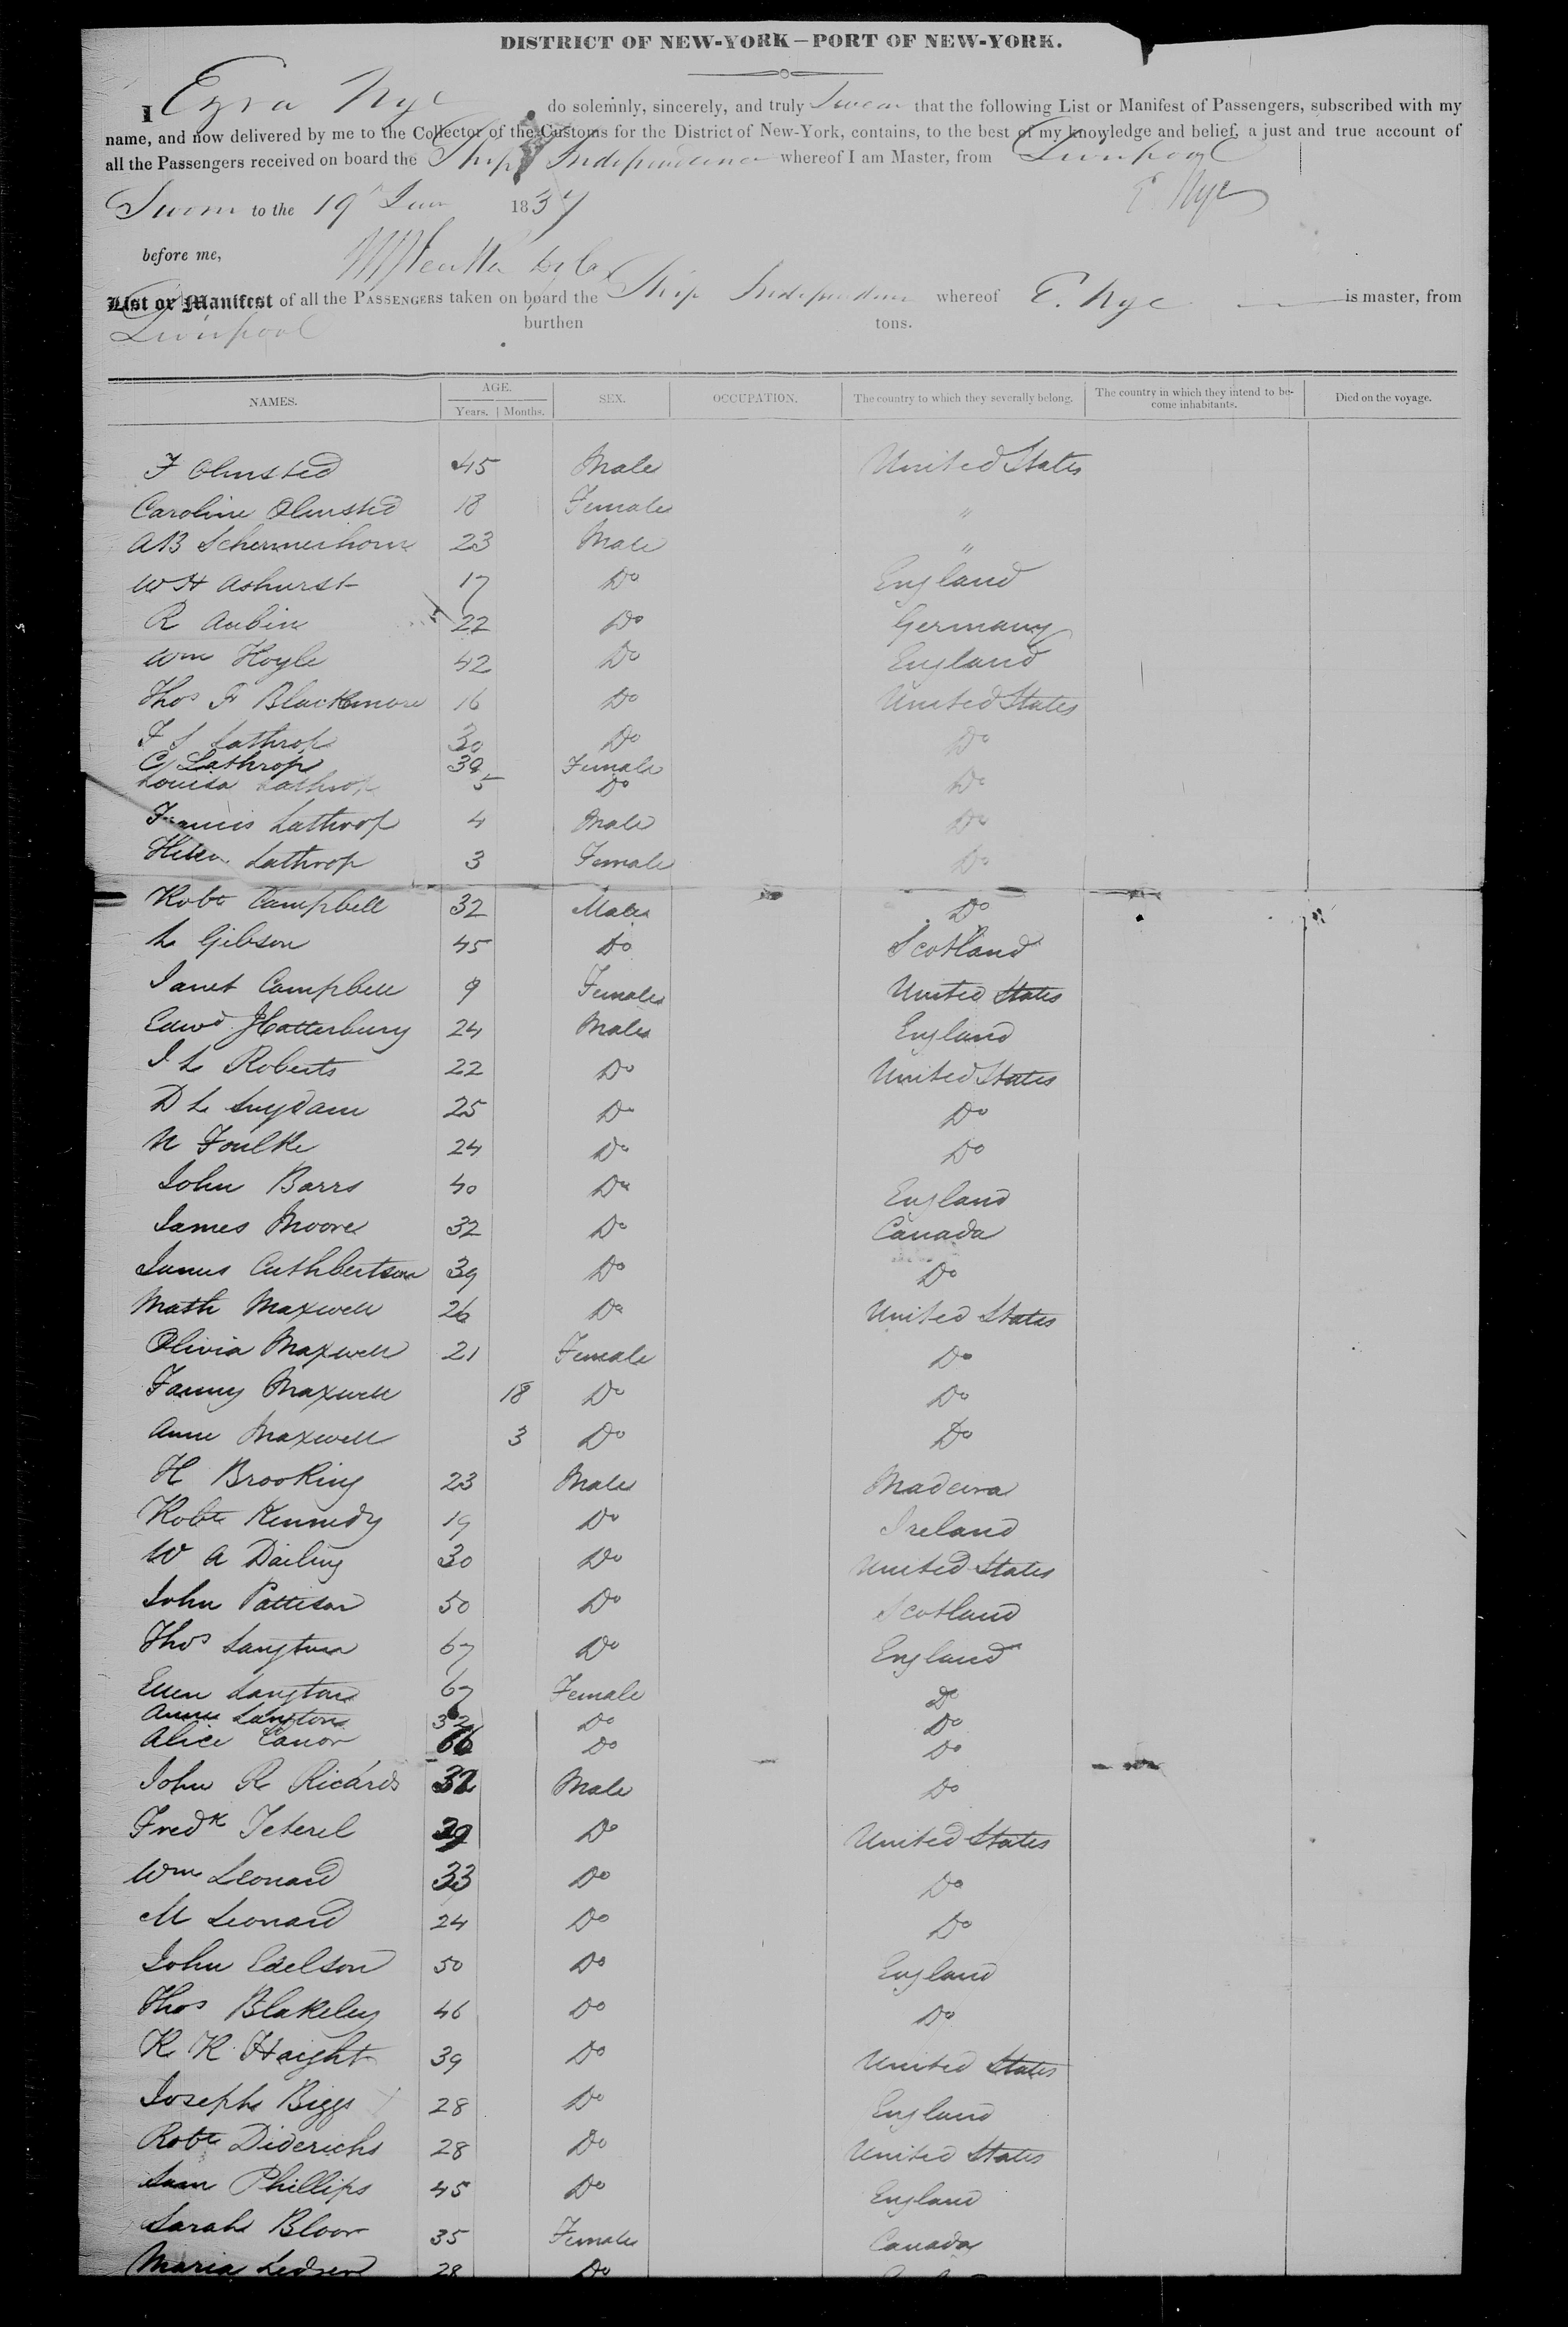 DISTRICT OF NEW-YORK—PORT OF NEW-YORK.
I Ezra Nye do solemnly, sincerely, and truly Swear that the following List or Manifest of Passengers, subscribed with my
name, and now delivered by me to the Collector of the Customs for the District of New-York, contains, to the best of my knowledge and belief, a just and true account of
all the Passengers received on board the Ship Independence whereof I am Master, from Liverpool
Sworn to the 19 June 1837 E. Nye
before me,
List or Manifest of all the PASSENGERS taken on board the Ship Independence whereof E. Nye is master, from
Liverpool burthen tons.
NAMES. AGE. Years. Months. SEX. OCCUPATION. The country to which they severally belong. The country in which they intend to become inhabitants. Died on the voyage.
F Olmsted 45 Male United States
Caroline Olmsted 18 Female "
AB Schermerhorn 23 Male "
W H Ashurst 17 Do England
R Aubin 22 Do Germany
Wm Hoyle 42 Do England
Thos F Blackmore 16 Do United States
F S Lathrop 30 Do Do
C Lathrop 39 Female
Louisa Lathrop 5 Do Do
Francis Lathrop 4 Male Do
Helen Lathrop 3 Female Do
Robt Campbell 32 Male Do
L Gibson 45 Do Scotland
Janet Campbell 9 Female United States
Edwd Hatterbury 24 Male England
J L Roberts 22 Do United States
D L Suydam 25 Do Do
N Foulke 24 Do Do
John Barrs 40 Do England
James Moore 32 Do Canada
James Cuthbertson 39 Do Do
Math Maxwell 26 Do United States
Olivia Maxwell 21 Female Do
Fanny Maxwell 18 Do Do
Anne Maxwell 3 Do Do
H Brooking 23 Male Madeira
Robt Kennedy 19 Do Ireland
W A Darling 30 Do United States
John Pattison 50 Do Scotland
Thos Langton 67 Do England
Ellen Langton 67 Female Do
Anne Langton 32 Do Do
Alice Canor 66 Do Do
John R Ricards 32 Male Do
Fredk Teterel 39 Do United States
Wm Leonard 33 Do Do
M Leonard 24 Do Do
John Edelson 50 Do England
Thos Blakeley 46 Do Do
R K Haight 39 Do United States
Joseph Biggs 28 Do England
Robt Diderichs 28 Do United States
Sam Phillips 45 Do England
Sarah Bloor 35 Female Canada
Maria 28 Do